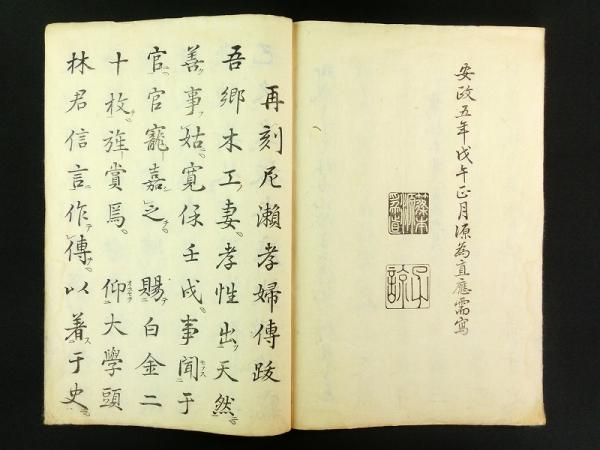 安政五年戊午正月源為直應需寫
再刻尼瀬孝婦傳跋
吾鄉木工妻孝性出天然
善事姑寛保壬戌事聞于
官官寵嘉之 賜白金二
十枚旌賞焉 仰大學頭
林君信言作傳以著于史